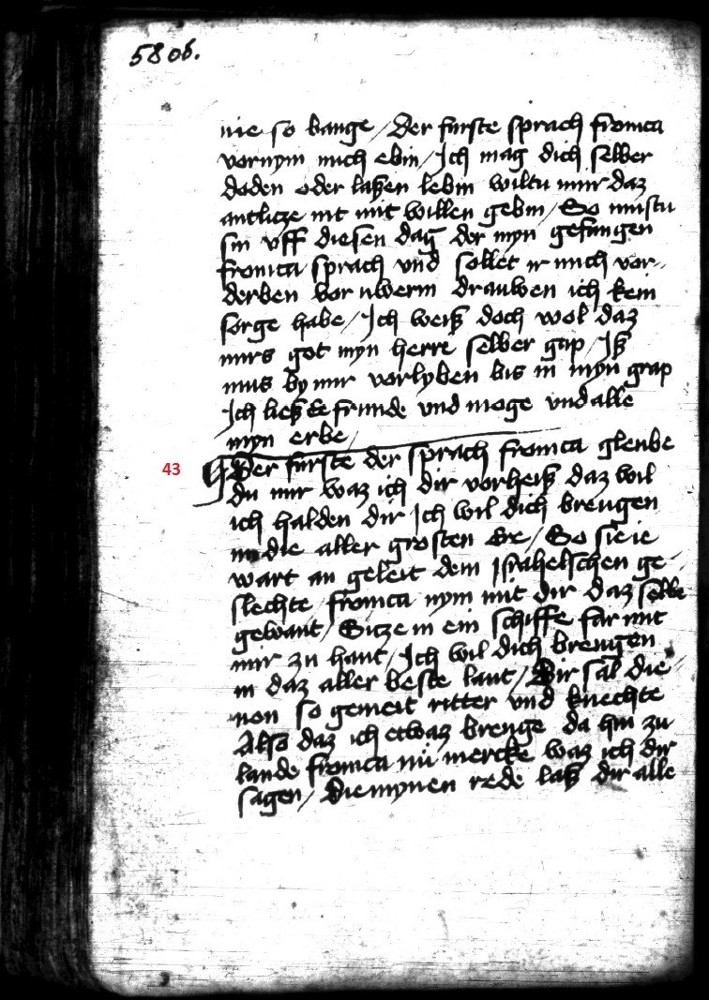 580b.
nie so bange / Der furste sprach fronica
vornym mich ebin / Ich mag dich selber
doden oder laßen lebin wiltu mir daz
antlicze nit mit willen gebin / So mustu
sin vff diesen dag der myn gefangen
fronica sprach vnd sollet ir mich vor-
derben vor uwerm drauwen ich kein
sorge habe / Ich weiß doch wol daz
mirs got myn herre selber gap / Iß
mus by mir vorlyben bis in myn grap
Ich ließ ee frunde vnd moge vnd alle
myn erbe /
43
Der furste der sprach fronica gleube
du mir waz ich dir vorheiß daz wil
ich halden dir Ich wil dich brengen
in die aller grosten Ere / So sie ie
wart an geleit dem Israhelschen ge-
slechte / fronica nym mit dir daz selbe
gewant / Sitze in ein schiffe far mit
mir zu hant / Ich wil dich brengen
in daz aller beste lant / Dir sal die-
non so gemeit ritter vnd knechte
Also daz ich etwaz brenge da hin zu
lande fronica nu mercke waz ich dir
sagen / Die mynen rede laß dir alle